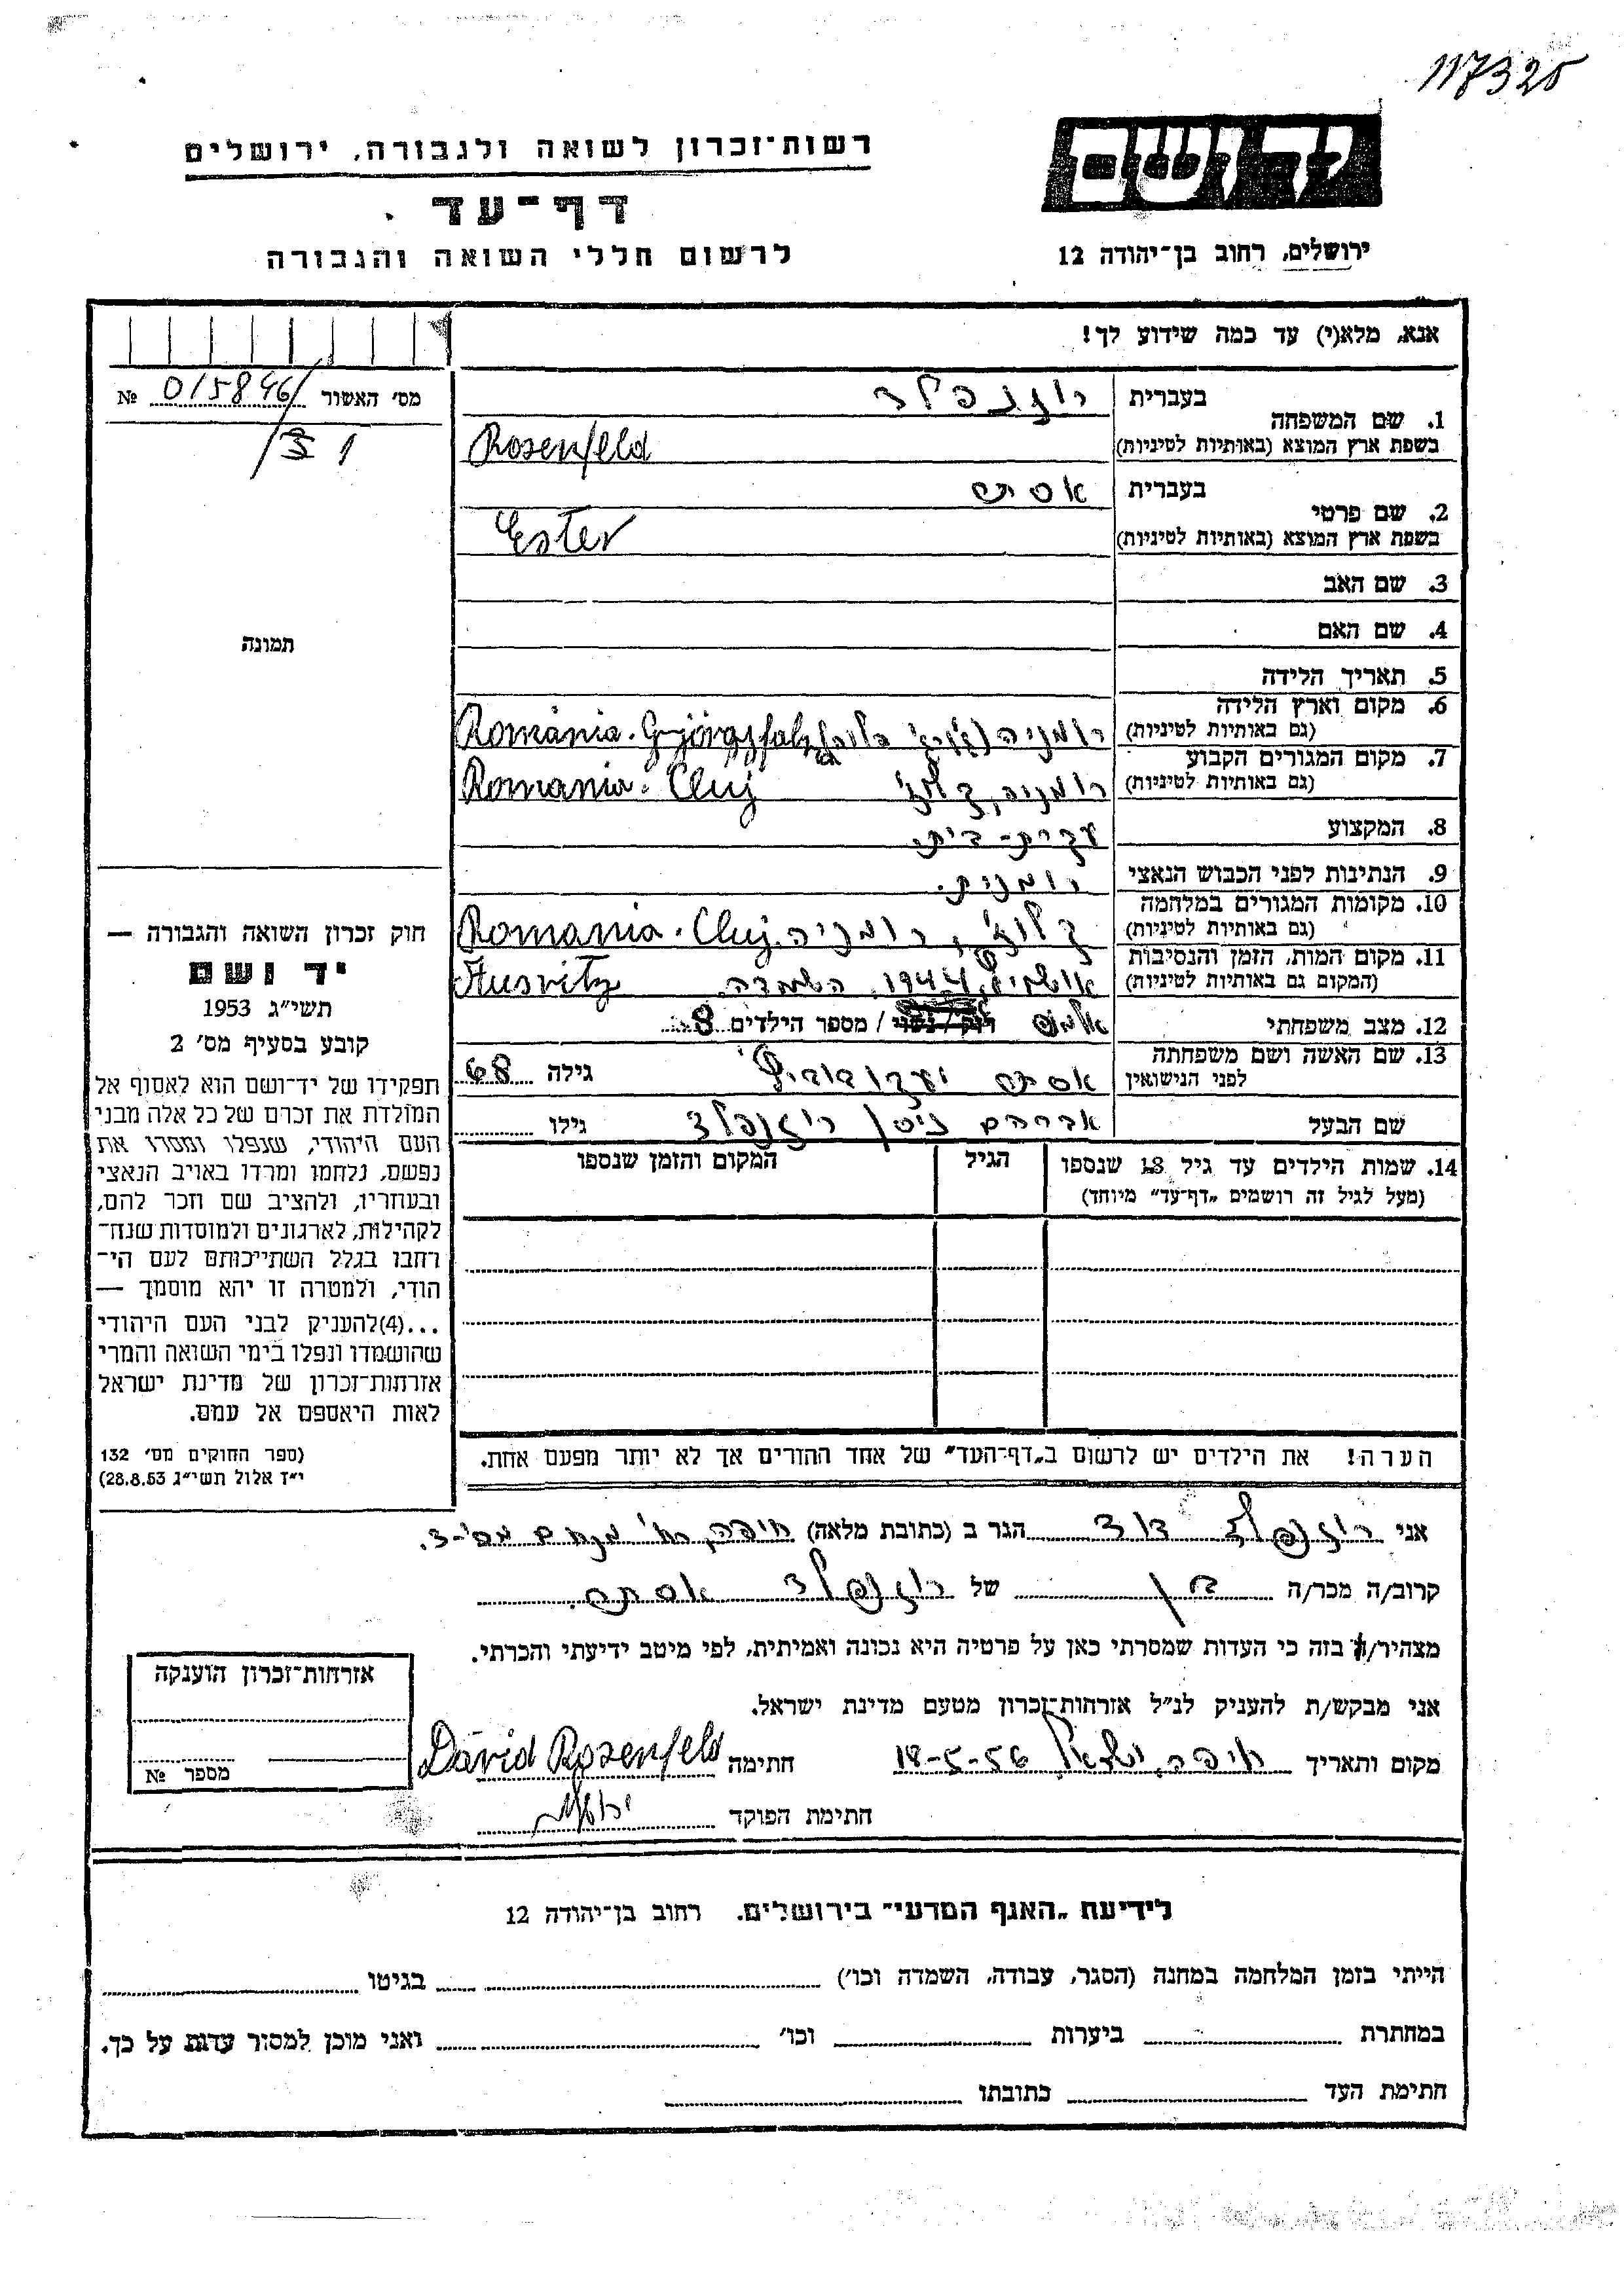 117325
יד ושם
ירושלים, רחוב בן־יהודה 12
רשות־זכרון לשואה ולגבורה, ירושלים
דף־עד
לרשום חללי השואה והגבורה
אנא, מלא(י) עד כמה שידוע לך!
מס׳ האשור 015846 №
1. שם המשפחה
בעברית רוזנפלד
בשפת ארץ המוצא (באותיות לטיניות) Rosenfeld
2. שם פרטי
בעברית אסתר
בשפת ארץ המוצא (באותיות לטיניות) Ester
3. שם האב
4. שם האם
5. תאריך הלידה
6. מקום וארץ הלידה
(גם באותיות לטיניות) רומניה România.
7. מקום המגורים הקבוע
(גם באותיות לטיניות) רומניה, קלוג׳ Romania. Cluj
8. המקצוע עקרת־בית.
9. הנתינות לפני הכבוש הנאצי רומנית.
10. מקומות המגורים במלחמה
(גם באותיות לטיניות) קלוג׳, רומניה. Romania. Cluj
11. מקום המות, הזמן והנסיבות
(המקום גם באותיות לטיניות) אושוויץ, 1944, השמדה. Ausvitz
12. מצב משפחתי אלמנה רוק / נשוי / מספר הילדים 8
13. שם האשה ושם משפחתה
לפני הנישואין אסתר יעקובוביץ׳ גילה 68
שם הבעל אברהם ניסן רוזנפלד גילו
14. שמות הילדים עד גיל 18 שנספו
(מעל לגיל זה רושמים „דף־עד״ מיוחד)
הגיל
המקום והזמן שנספו
הערה! את הילדים יש לרשום ב„דף־העד״ של אחד ההורים אך לא יותר מפעם אחת.
תמונה
חוק זכרון השואה והגבורה —
יד ושם
תשי״ג 1953
קובע בסעיף מס׳ 2
תפקידו של יד־ושם הוא לאסוף אל
המולדת את זכרם של כל אלה מבני
העם היהודי, שנפלו ומסרו את
נפשם, נלחמו ומרדו באויב הנאצי
ובעוזריו, ולהציב שם וזכר להם,
לקהילות, לארגונים ולמוסדות שנח־
רחבו בגלל השתייכותם לעם הי־
הודי, ולמטרה זו יהא מוסמך —
...(4)להעניק לבני העם היהודי
שהושמדו ונפלו בימי השואה והמרי
אזרחות־זכרון של מדינת ישראל
לאות היאספם אל עמם.
(ספר החוקים מס׳ 132
י״ז אלול תשי״ג 28.8.53)
אני רוזנפלד דוד הגר ב (כתובת מלאה) חיפה, רח׳ מנחם
קרוב/ה מכר/ה בן של רוזנפלד אסתר.
מצהיר/ה בזה כי העדות שמסרתי כאן על פרטיה היא נכונה ואמיתית, לפי מיטב ידיעתי והכרתי.
אני מבקש/ת להעניק לנ״ל אזרחות־זכרון מטעם מדינת ישראל.
מקום ותאריך חיפה, ישראל 18-5-56 חתימה David Rosenfeld
חתימת הפוקד
אזרחות־זכרון הוענקה
מספר №
לידיעת „האגף המדעי״ בירושלים. רחוב בן־יהודה 12
הייתי בזמן המלחמה במחנה (הסגר, עבודה, השמדה וכו׳) בגיטו
במחתרת ביערות וכו׳ ואני מוכן למסור עדות על כך.
חתימת העד כתובתו